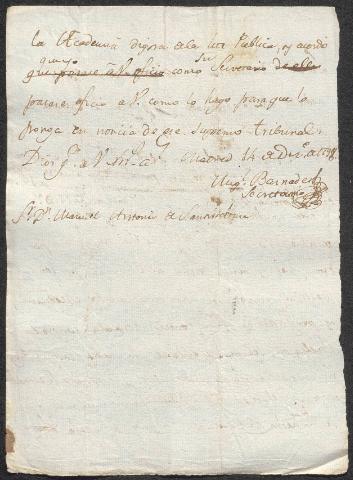 la Academia digna de la luz Publica, y acordo
que yo
que pasase à V. oficio como su Secretario de ella
pasase oficio a V. como lo hago para que lo
ponga en noticia de ese Supremo Tribunal.
D.s g.e a V. m.s a.s Madrid 14 de Dic.e de
Secretario
S.r D.n Manuel Antonio de